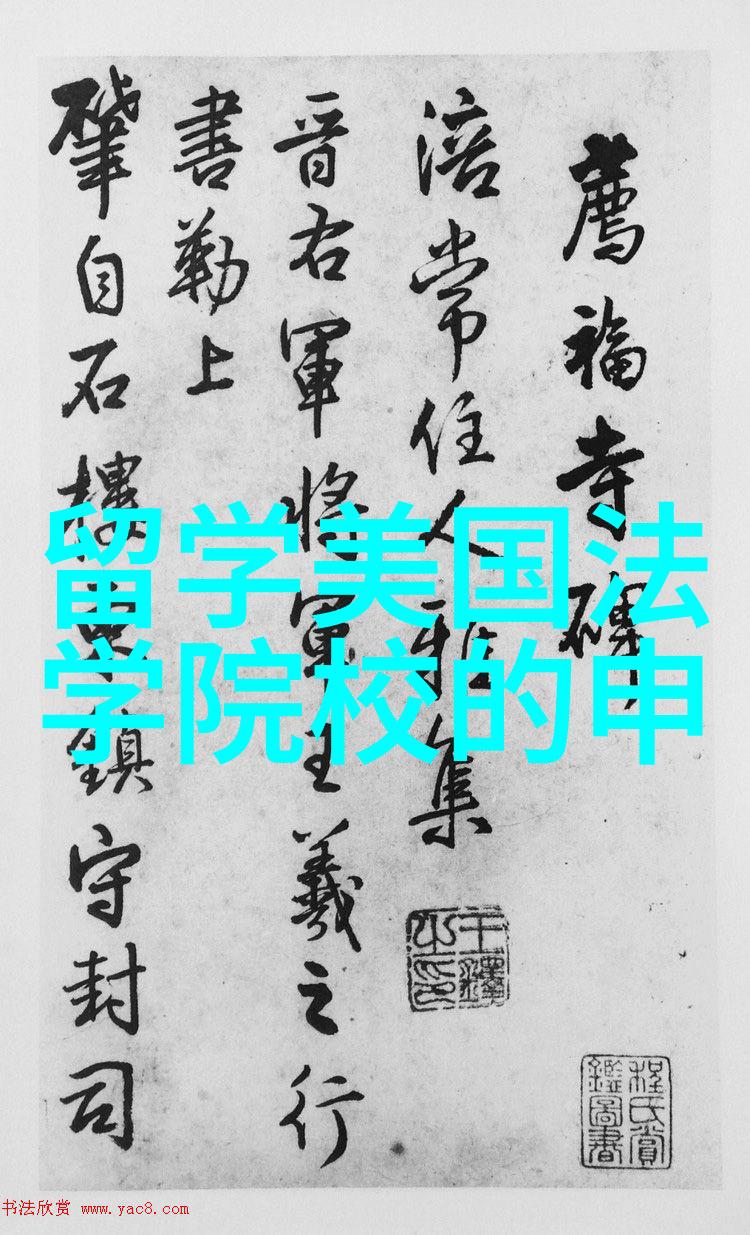 薦福寺碑
涪常住人雅集
晋右軍將軍王羲之行
書勒上
肇自石樓
鎮守封司
留学美国法
学院校的申
程氏賞
鑑圖書
书法欣赏 www.yac8.com